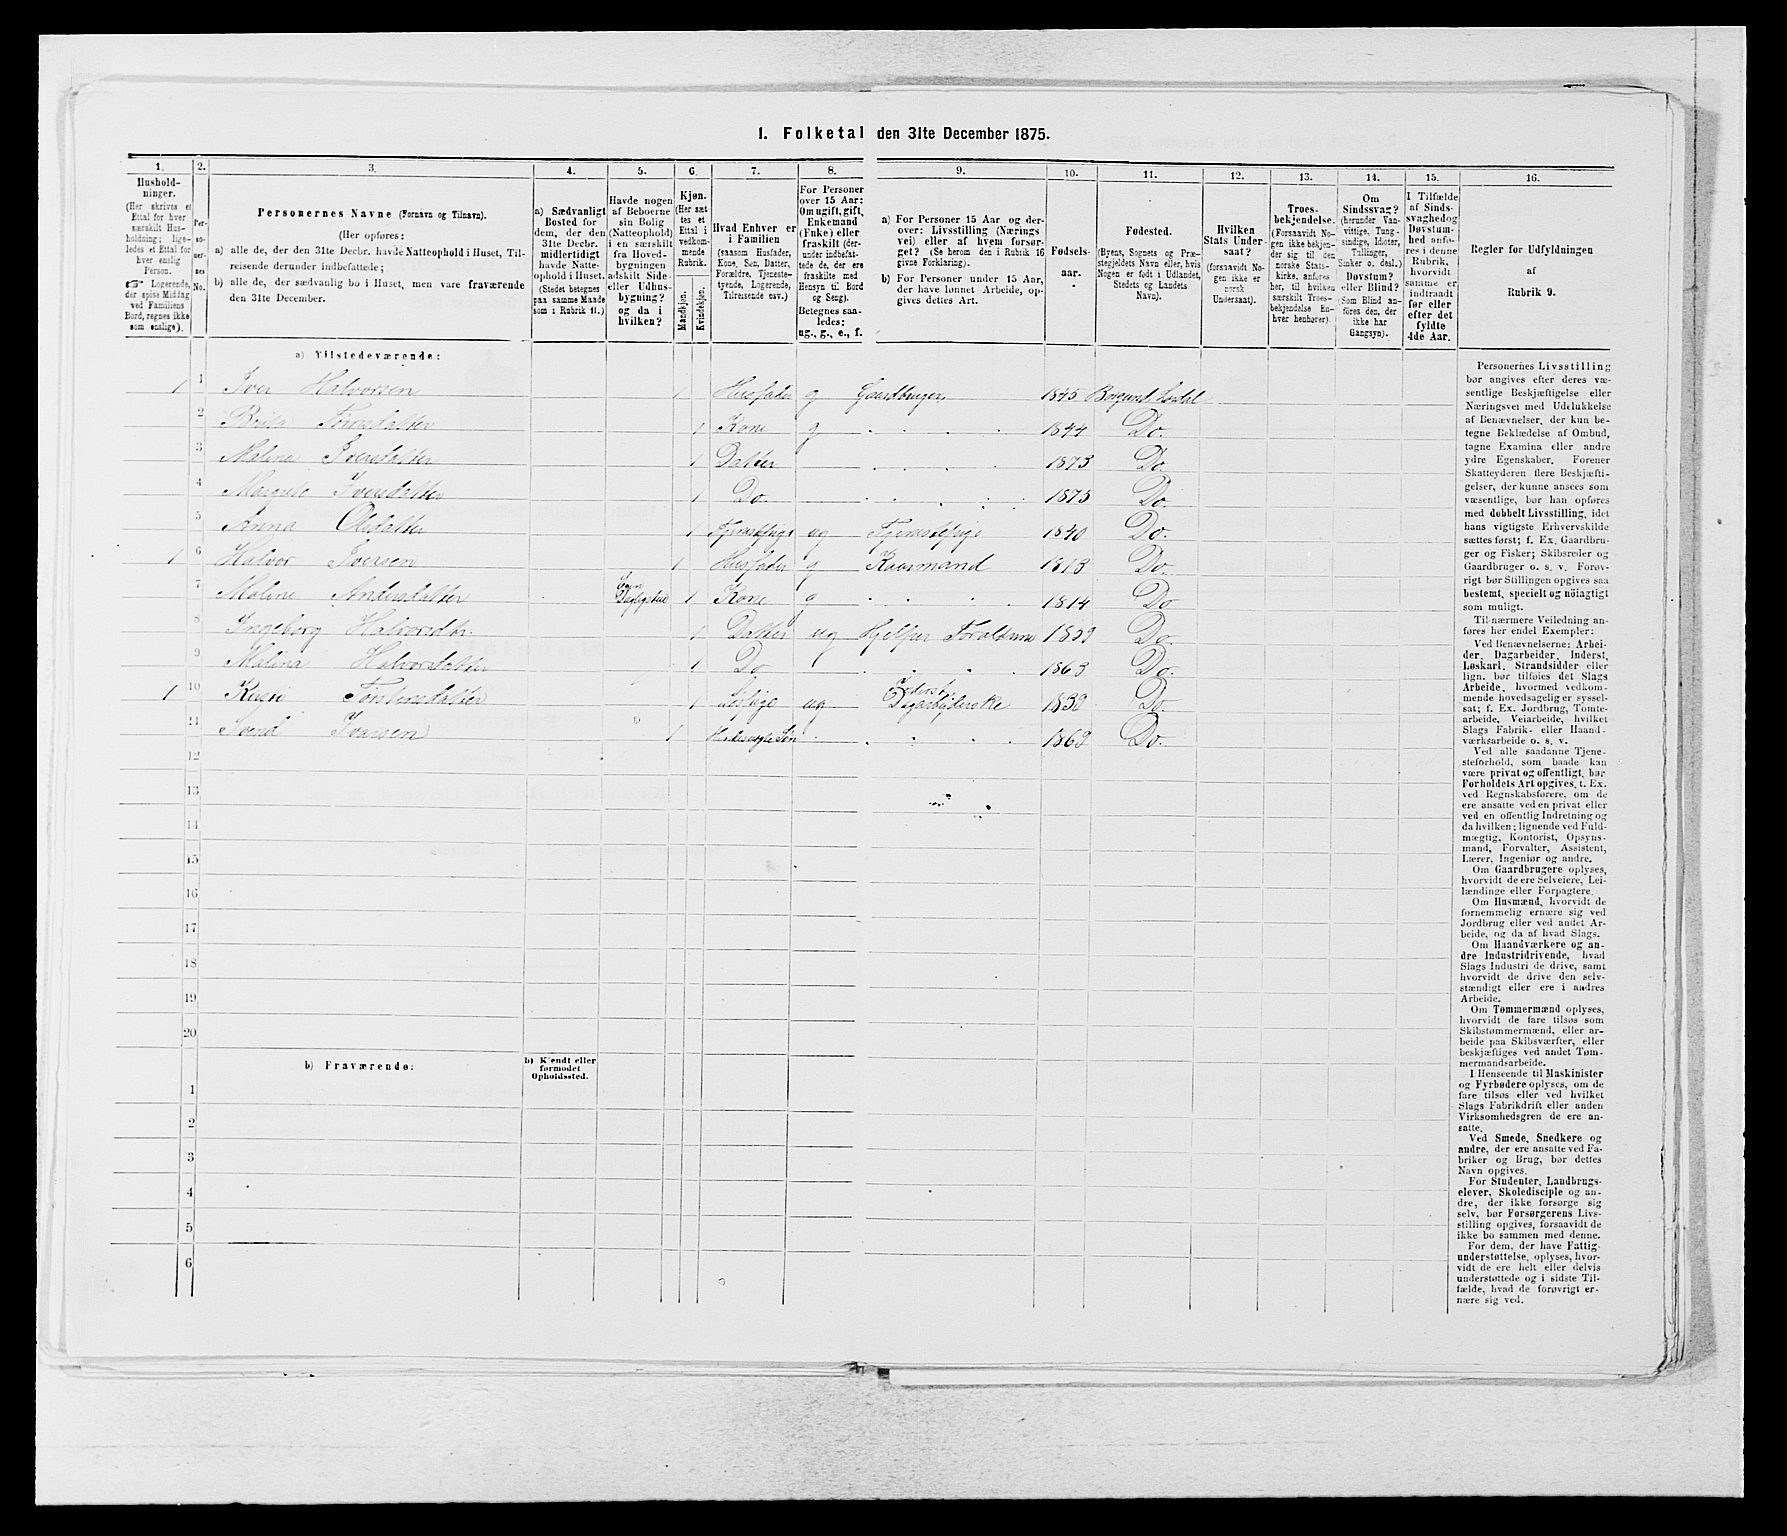 1. Folketal den 31te December 1875.
1.
Husholdninger.
(Her skrives et
Ettal for hver
særskilt Husholdning; ligeledes
et Ettal for
hver enslig
Person.
Logerende,
der spise Middag
ved Familiens
Bord, regnes ikke
som enslige).
2.
Personernes
No.
3.
Personernes Navne (Fornavn og Tilnavn).
(Her opføres:
a) alle de, der den 31te Decbr. havde Natteophold i Huset, Tilreisende
derunder indbefattede;
b) alle de, der sædvanlig bo i Huset, men vare fraværende
den 31te December.
4.
a) Sædvanligt
Bosted for
dem, der den
31te Decbr.
midlertidigt
havde Natteophold
i Huset.
(Stedet betegnes
paa samme Maade
som i Rubrik 11.)
5.
Havde nogen
af Beboerne
sin Bolig
(Natteophold)
i en særskilt
fra Hovedbygningen
adskilt Side-
eller Udhusbygning?
og da i
hvilken?
6.
Kjøn.
(Her sættes
et
Ettal i
vedkommende
Rubrik.
Mandkjøn.
Kvindekjøn.
7.
Hvad Enhver er
i Familien
(saasom Husfader,
Kone, Søn, Datter,
Forældre, Tjenestetyende,
Logerende,
Tilreisende osv.)
8.
For Personer
over 15 Aar:
Om ugift, gift,
Enkemand
(Enke) eller
fraskilt (derunder
indbefattede
de, der ere
fraskilte med
Hensyn til Bord
og Seng).
Betegnes saaledes:
ug., g., e., f.
9.
a) For Personer 15 Aar og derover:
Livsstilling (Næringsvei)
eller af hvem forsørget?
(Se herom den i Rubrik 16
givne Forklaring).
b) For Personer under 15 Aar,
der have lønnet Arbeide, opgives
dettes Art.
10.
Fødselsaar.
11.
Fødested.
(Byens, Sognets og Præstegjeldets
Navn eller, hvis
Nogen er født i Udlandet,
Stedets og Landets
Navn).
12.
Hvilken
Stats Undersaat?
(forsaavidt Nogen
ikke er
norsk
Undersaat).
13.
Troesbekjendelse.
(Forsaavidt Nogen
ikke bekjender
sig til den
norske Statskirke,
anføres
her, til hvilken
særskilt Troesbekjendelse
Enhver
henhører).
14.
Om
Sindssvag?
(herunder Vanvittige,
Tungsindige,
Idioter,
Tullinger,
Sinker o. desl.)
Døvstum?
eller Blind?
(Som Blind anføres
den, der
ikke har
Gangsyn).
15.
I Tilfælde
af Sindssvaghed og
Døvstumhed
anføres
i denne
Rubrik,
hvorvidt
samme er
indtraadt
før eller
efter det
fyldte
4de Aar.
16.
Regler for Udfyldningen
af
Rubrik 9.
a) Tilstedeværende:
1 1 Iver Halvorsen 1 Husfader g Gaardbruger 1845 Borgund Lærdal
2 Brita Tormodatter 1 Kone g 1844 Do.
3 Malena Iversdatter 1 Datter 1873 Do.
4 Margrete Iversdatter 1 Do. 1875 Do.
5 Anna Olsdatter 1 Tjenestpige ug Tjenestpige 1840 Do.
1 6 Halvor Iversen 1 Husfader g Kaarmand 1813 Do.
7 Maline Andersdatter 1 Kone g 1814 Do
8 Ingeborg Halvorsdtr. 1 Datter ug Hjelper Foreldrene 1859 Do.
9 Malina Halvorsdatter 1 Do 1863 Do.
1 10 Torstensdatter 1 ug Dagarbyderske 1839 Do.
11 Svend Iversen 1 Søn 1869 Do.
12
13
14
15
16
17
18
19
20
b) Fraværende:
b) Kjendt eller
formodet
Opholdssted.
1
2
3
4
5
6
Personernes Livsstilling
bør angives efter deres væsentlige
Beskjæftigelse eller
Næringsvei med Udelukkelse
af Benævnelser, der kun betegne
Beklædelse af Ombud,
tagne Examina eller andre
ydre Egenskaber. Forener
Skatteyderen flere Beskjæftigelser,
der kunne ansees som
væsentlige, bør han opføres
med dobbelt Livsstilling, idet
hans vigtigste Erhvervskilde
sættes først; f. Ex. Gaardbruger
og Fisker; Skibsreder og
Gaardbruger o. s. v. Forøvrigt
bør Stillingen opgives saa
bestemt, specielt og nöiagtigt
som muligt.
Til nærmere Veiledning anføres
her endel Exempler:
Ved Benævnelserne: Arbeider,
Dagarbeider, Inderst,
Løskarl, Strandsidder eller
lign. bør tilføies det Slags
Arbeide, hvormed vedkommende
hovedsagelig er sysselsat;
f. Ex. Jordbrug, Tomtearbeide,
Veiarbeide, hvilket
Slags Fabrik- eller Haandværksarbeide
o. s. v.
Ved alle saadanne Tjenesteforhold,
som baade kan
være privat og offentligt, bør
Forholdets Art opgives, t. Ex.
ved Regnskabsførere, om de
ere ansatte ved en privat eller
ved en offentlig Indretning og
da hvilken; lignende ved Fuldmægtig,
Kontorist, Opsynsmand,
Forvalter, Assistent,
Lærer, Ingeniør og andre.
Om Gaardbrugere oplyses,
hvorvidt de ere Selveiere, Leilændinge
eller Forpagtere.
Om Husmænd, hvorvidt de
fornemmelig ernære sig ved
Jordbrug eller ved andet Arbeide,
og da af hvad Slags.
Om Haandværkere og andre
Industridrivende, hvad
Slags Industri de drive, samt
hvorvidt de drive den selvstændigt
eller ere i andres
Arbeide.
Om Tømmermænd oplyses,
hvorvidt de fare tilsøs som
Skibstømmermænd, eller arbeide
paa Skibsværfter, eller
beskjæftiges ved andet Tømmermandsarbeide.
I Henseende til Maskinister
og Fyrbødere oplyses, om de
fare tilsøs eller ved hvilket
Slags Fabrikdrift eller anden
Virksomhedsgren de ere ansatte.
Ved Smede, Snedkere og
andre, der ere ansatte ved Fabriker
og Brug, bør dettes
Navn opgives.
For Studenter, Landbrugselever,
Skoledisciple og andre,
der ikke forsørge sig
selv, bør Forsørgerens Livsstilling
opgives, forsaavidt de
ikke bo sammen med denne.
For dem, der have Fattigunderstøttelse,
oplyses, hvorvidt
de ere helt eller delvis
understøttede og i sidste Tilfælde,
hvad de forøvrigt ernære
sig ved.